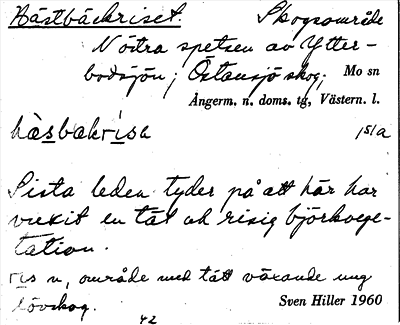 Hästbäckriset. Skogsområde
Nöstra spetsen av Ytter-
bodsjön; Östansjö skog; Mo sn
Ångerm. n. doms. tg, Västern. l.
hàsbakrisa 1sla
Sista leden tyder på att här har
vuxit en tät och risig björkvege-
tation.
ris n, område med tätt växande ung
lövskog.
Sven Hiller 1960
42